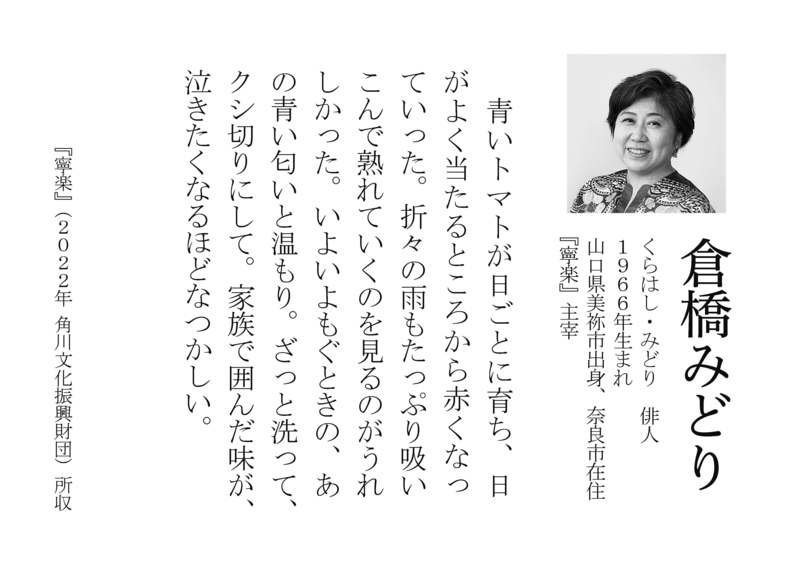 倉橋みどり
くらはし・みどり　俳人
1966年生まれ
山口県美祢市出身、奈良市在住
『寧楽』主宰
青いトマトが日ごとに育ち、日
がよく当たるところから赤くなっ
ていった。折々の雨もたっぷり吸い
こんで熟れていくのを見るのがうれ
しかった。いよいよもぐときの、あ
の青い匂いと温もり。ざっと洗って、
クシ切りにして。家族で囲んだ味が、
泣きたくなるほどなつかしい。
『寧楽』（2022年 角川文化振興財団）所収